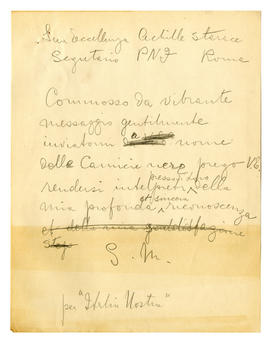 Sua Eccellenza Achille Starace
Segretario PNF Roma
Commosso da vibrante
messaggio gentilmente
inviatomi nome
delle Camicie nere prego V.E.
rendersi interprete presso Duce della
mia profonda et sincera riconoscenza
et della mia soddisfazione
G. M.
per "Italia Nostra"